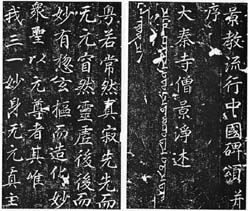 景教流行中國碑頌并
序
大秦寺僧景淨述
粵若常然真寂先先而
无元窅然靈虛後後而
妙有惣玄樞而造化妙
衆聖以元尊者其唯
我三一妙身无元真主